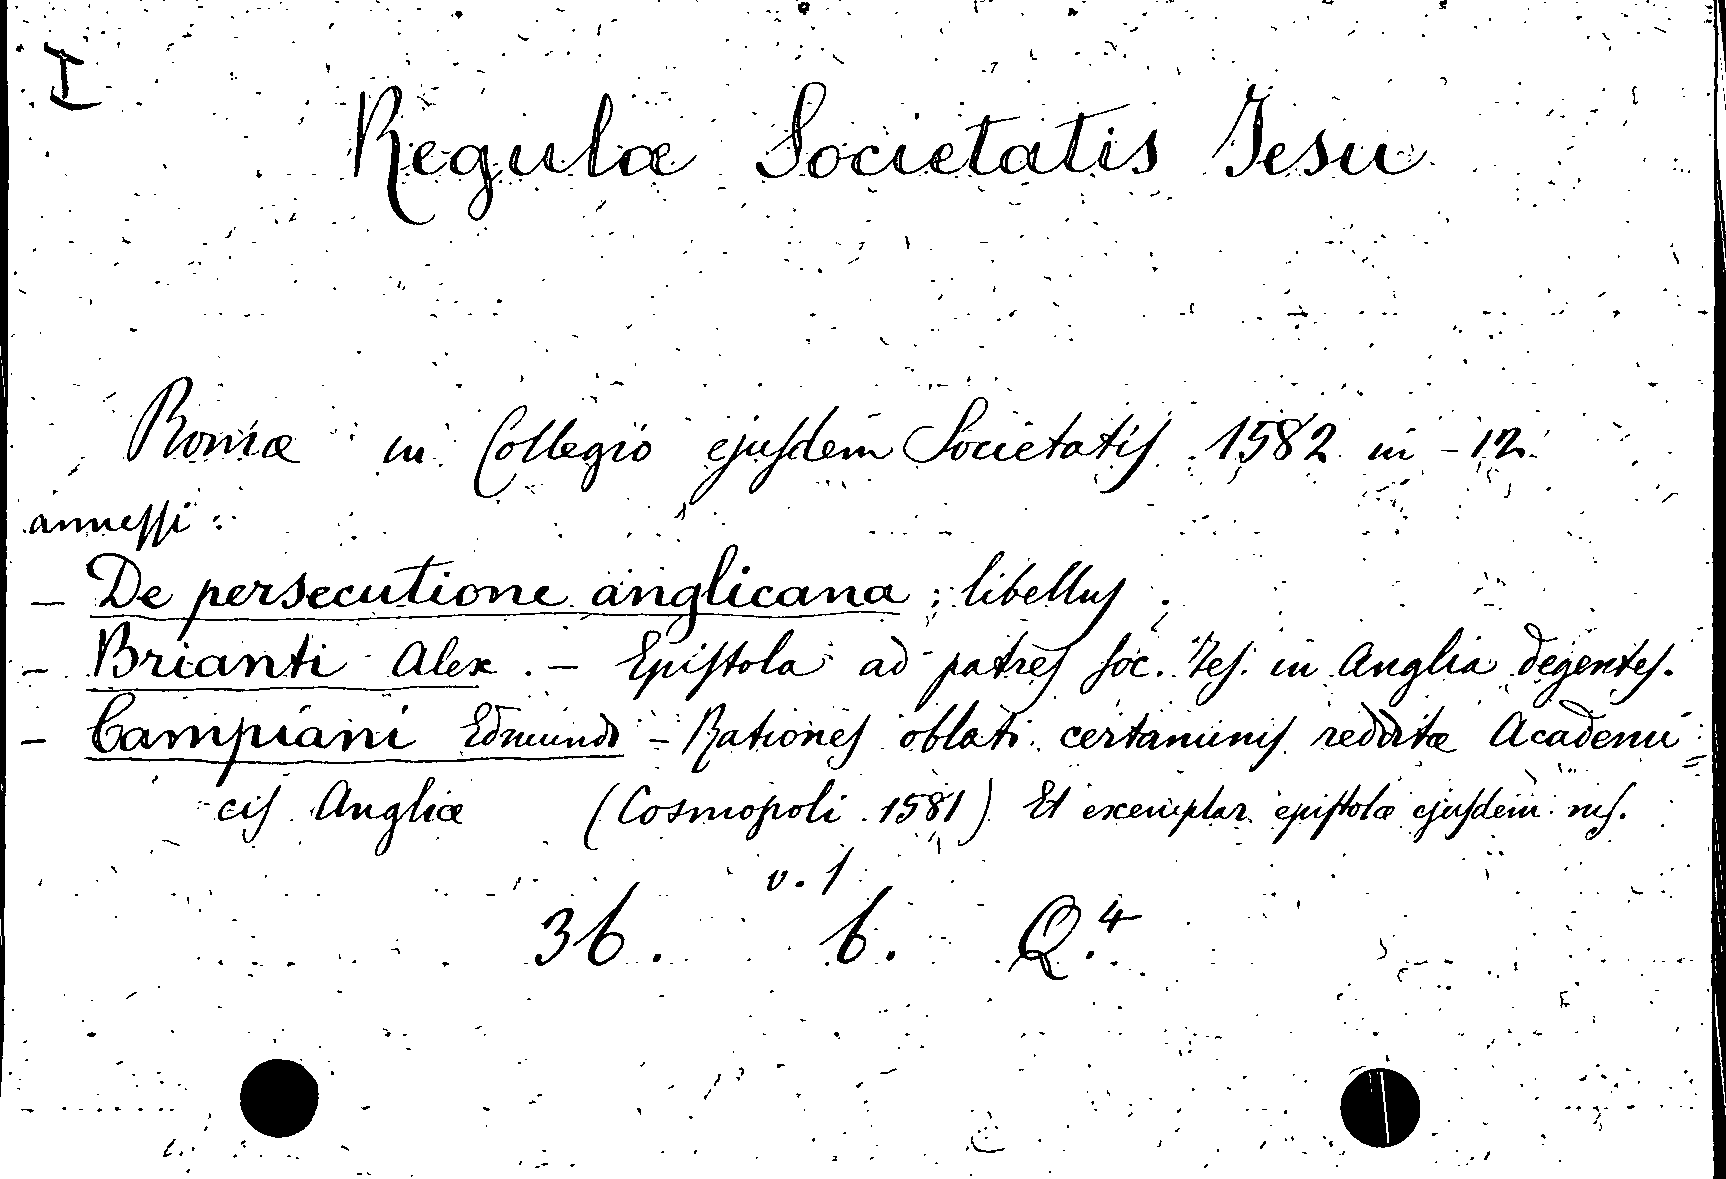 I
Regulæ Societatis Jesu
Romæ in Collegio ejusdem Societatis 1582 in-12
annessi:
- De persecutione anglicana; libellus.
- Brianti Alex. - Epistola ad patres soc. Jes. in Anglia degentes.
- Campiani Edmundi - Rationes oblati certaminis redditæ Academi=
cis Angliæ (Cosmopoli 1581) Et exemplar epistolæ ejusdem ms.
v. 1
36. b. Q.4